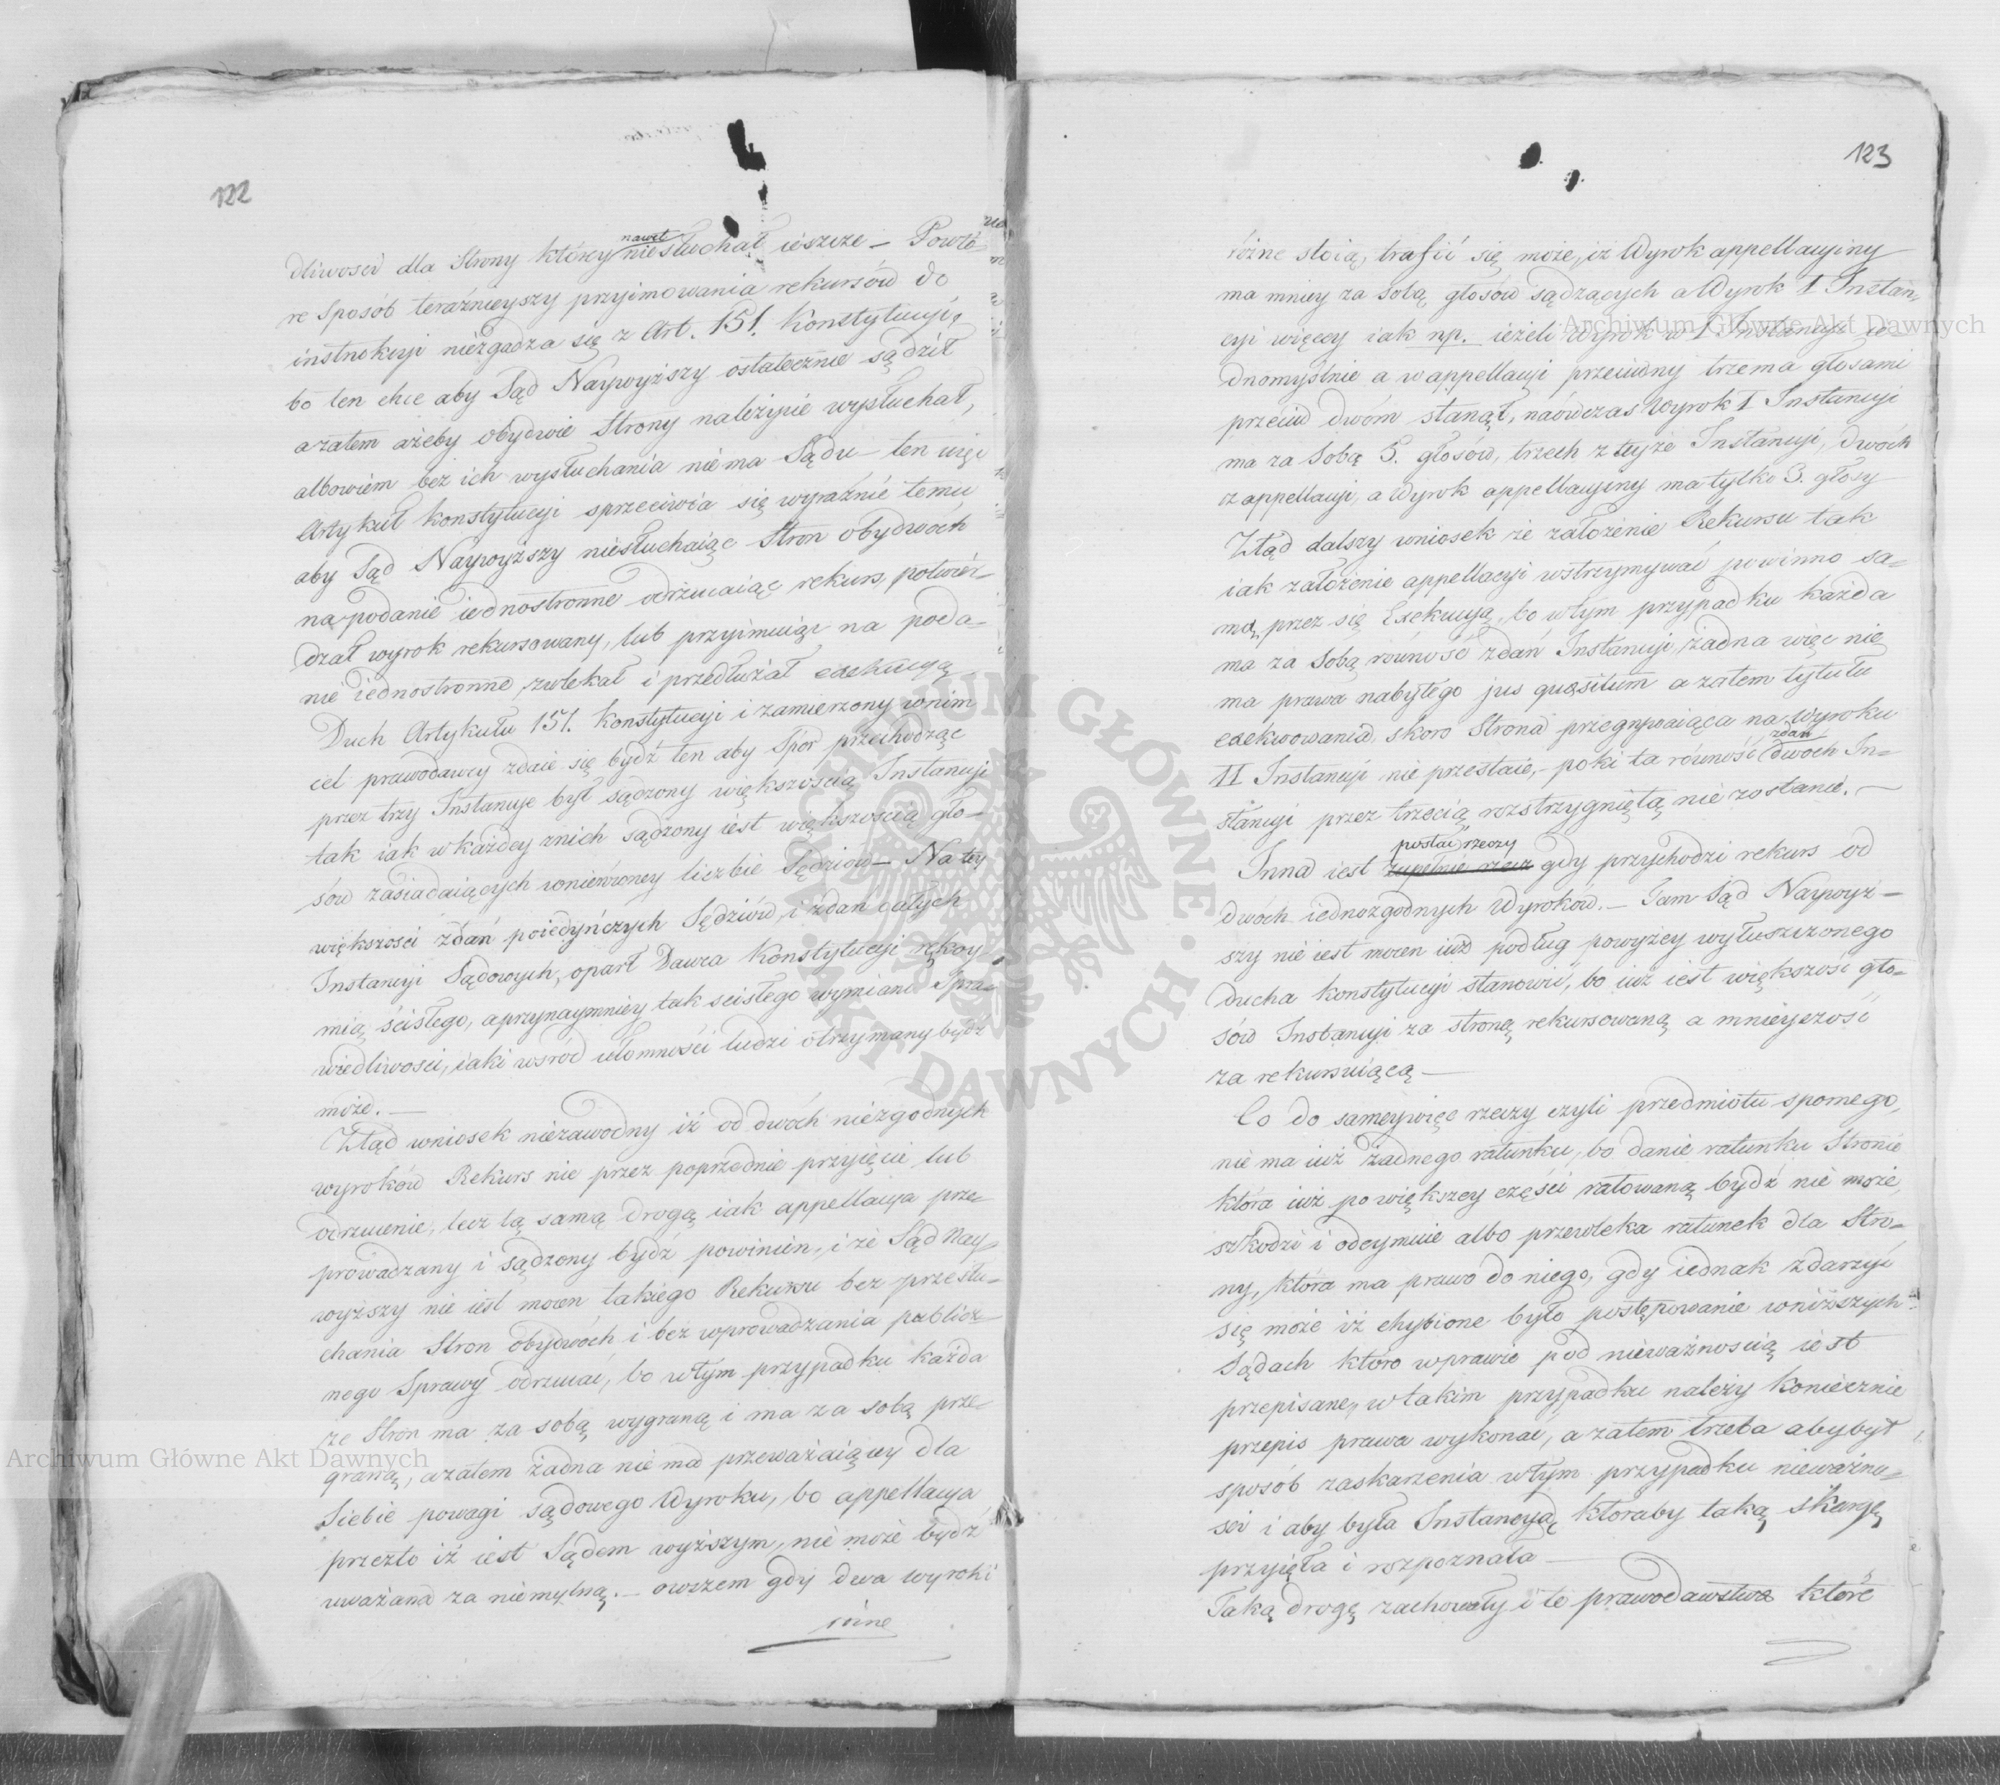 122
dliwości dla Strony którey nawet niesłuchał ieszcze – Powtó-
re Sposób teraźnieyszy przyimowania rekursów do
instrukcyi niezgadza się z Art. 151. Konstytucyi,
bo ten chce aby Sąd Naywyższy ostatecznie sądził
azatem ażeby obydwie Strony należycie wysłuchał,
albowiem bez ich wysłuchania niema Sądu – ten więc
Artykuł Konstytucyi sprzeciwia się wyraźnie temu
aby Sąd Naywyższy niesłuchaiąc Stron obydwóch
na podanie iednostronne odrzucaiąc rekurs, potwier-
dzał wyrok rekursowany, lub przyimuiąc na poda-
nie iednostronne, zwlekał i przedłużał exekucyą
Duch Artykułu 151. Konstytucyi i zamierzony wnim
cel prawodawcy zdaie się bydź ten aby Spór przechodząc
przez trzy Instancye był sądzony większością Instancyi
tak iak wkażdey znich sądzony iest większością gło-
sów zasiadaiących wnierówney liczbie Sędziów – Na tey
większości zdań poiedyńczych Sędziów, i zdań całych
Instancyi Sądowych, oparł Dawca Konstytucyi rękoy-
mią ścisłego, aprzynaymniey tak ścisłego wymiaru Spra-
wiedliwości, iaki wśród ułomności ludzi otrzymany bydź
może. –
Ztąd wniosek niezawodny iż od dwóch niezgodnych
wyroków Rekurs nie przez poprzednie przyięcie lub
odrzucenie, lecz tą samą drogą iak appellacya prze-
prowadzany i sądzony bydź powinien, i że Sąd Nay-
wyższy nie iest mocen takiego Rekursu bez przesłu-
chania Stron obydwóch i bez wprowadzania publicz-
nego Sprawy odrzucać, bo wtym przypadku każda
ze Stron ma za sobą wygraną i ma za sobą prze-
graną, azatem żadna nie ma przeważaiącey dla
Siebie powagi sądowego Wyroku, bo appellacya
przezto iż iest Sądem wyższym, nie może bydź
uważana za niemylną. – owszem gdy dwa wyroki
różne
123
różne stoią, trafić się może, iż Wyrok appellacyiny
ma mniey za sobą głosów sądzących a Wyrok I Instan-
cyi więcey iak np. ieżeli Wyrok w I Instancyi ie-
dnomyślnie a w appellacyi przeciwny trzema głosami
przeciw dwóm stanął, naówczas Wyrok I Instancyi
ma za Sobą 5. głosów, trzech z teyże Instancyi, dwóch
z appellacyi, a Wyrok appellacyiny ma tylko 3. głosy
Ztąd dalszy wniosek że założenie Rekursu tak
iak założenie appellacyi wstrzymywać powinno sa-
mą przez się Exekucyą, bo wtym przypadku każda
ma za Sobą równość zdań Instancyi, żadna więc nie
ma prawa nabytego jus quæsitum a zatem tytułu
exekwowania, skoro Strona przegrywaiąca na Wyroku
II Instancyi nie przestaie, – poki ta równość zdań dwóch In-
stancyi przez trzecią rozstrzygniętą nie zostanie. –
Inna iest zupełnie rzecz postać rzeczy gdy przychodzi rekurs od
dwóch iednozgodnych Wyroków. – Tam Sąd Naywyż-
szy nie iest mocen iuż podług powyżey wyłuszczonego
Ducha Konstytucyi stanowić, bo iuż iest większość gło-
sów Instancyi za stroną rekursowaną a mnieyszość
za rekursuiącą –
Co do sameywięc rzeczy czyli przedmiotu spornego,
nie ma iuż żadnego ratunku, bo danie ratunku Stronie
która iuż po większey części ratowaną bydź nie może,
szkodzi i odeymuie albo przewleka ratunek dla Stro-
ny, która ma prawo do niego, gdy iednak zdarzyć
się może iż chybione było postępowanie wniższych
Sądach które wprawie pod nieważnością iest
przepisane, wtakim przypadku należy koniecznie
przepis prawa wykonać, a zatem trzeba aby był
sposób zaskarżenia wtym przypadku nieważno-
ści i aby była Instancya, któraby taką skargę
przyięła i rozpoznała –
Taką drogę zachowały i te prawodawstwa które
Archiwum Główne Akt Dawnych
Archiwum Główne Akt Dawnych
ARCHIWUM GŁÓWNE AKT DAWNYCH